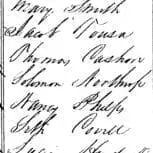 Mary Smith
Jacob Tousa
Thomas Cashon
Solomon Northrop
Nancy Phelps
Seth Covell